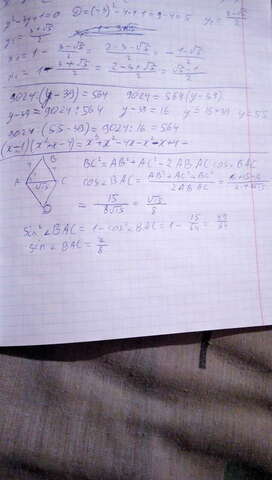 y²-3y+1=0 D=(-3)²-4·1·1=9-4=5 y₂ = (3-√5)/2
y₁ = (3+√5)/2
x₁=1-(3-√5)/2=(2-3+√5)/2=
x₂=1-(3+√5)/2=(2-3-√5)/2=
9024:(y-39)=564 9024=564(y-39)
y-39=9024:564 y-39=16 y=16+39 y=55
9024:(55-39)=9024:16=564
(x-1)(x²+x-4)=x³+x²-4x-x²-x+4=
B
A √15 C
D
BC²=AB²+AC²-2AB·AC·cos∠BAC
cos∠BAC=(AB²+AC²-BC²)/(2AB·AC)=
=15/(8√15)=√15/8
sin²∠BAC=1-cos²∠BAC=1-15/64=49/64
sin∠BAC=7/8